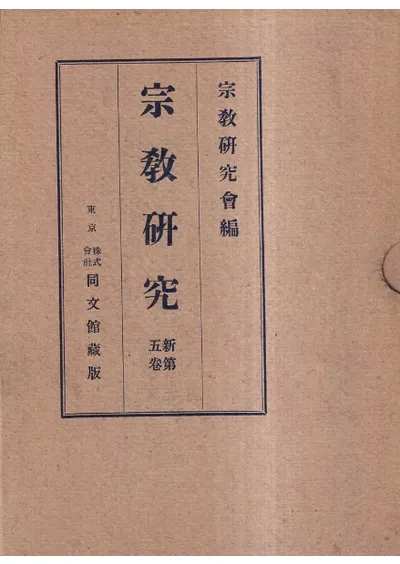 宗教硏究會編
宗教硏究
新第
五卷
東京
株式
會社
同文館藏版